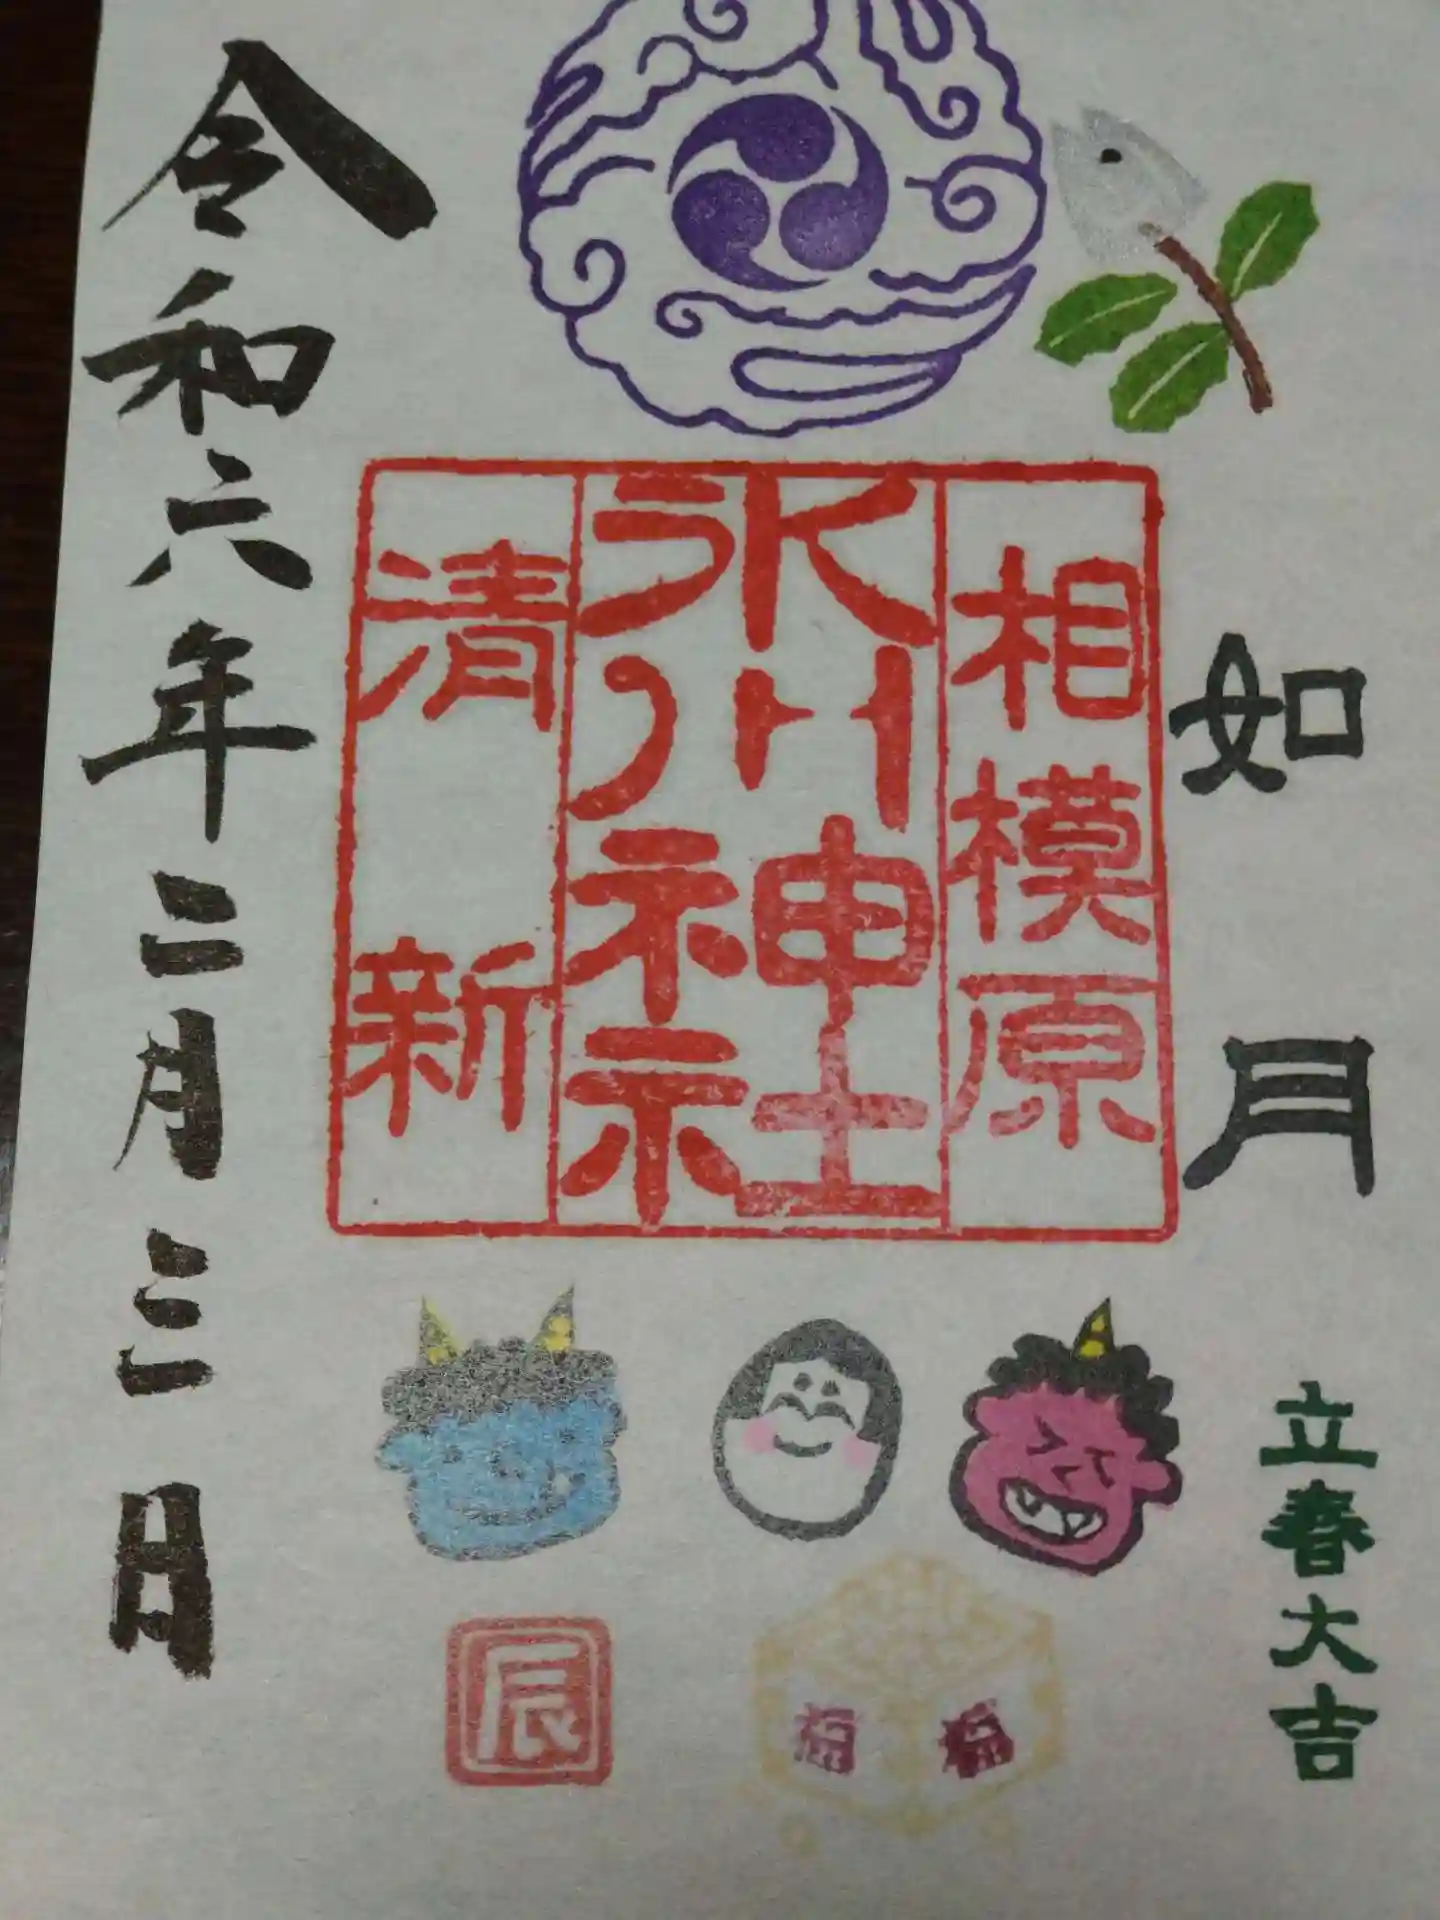 如月
立春大吉
相模原
氷川神社
清新
福
福
辰
令和六年二月三日